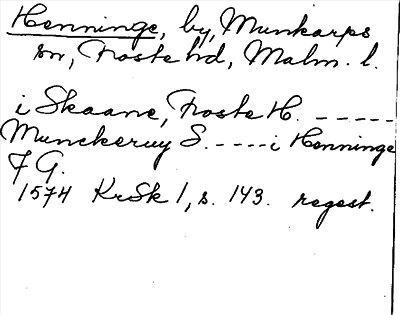 Henninge, by, Munkarps
sn, Frosta hd, Malm. l.
i Skaane, Froste H. -----
Munckeruy S. ----- i Henninge
F G.
1574 KrSk 1, s. 143. regest.